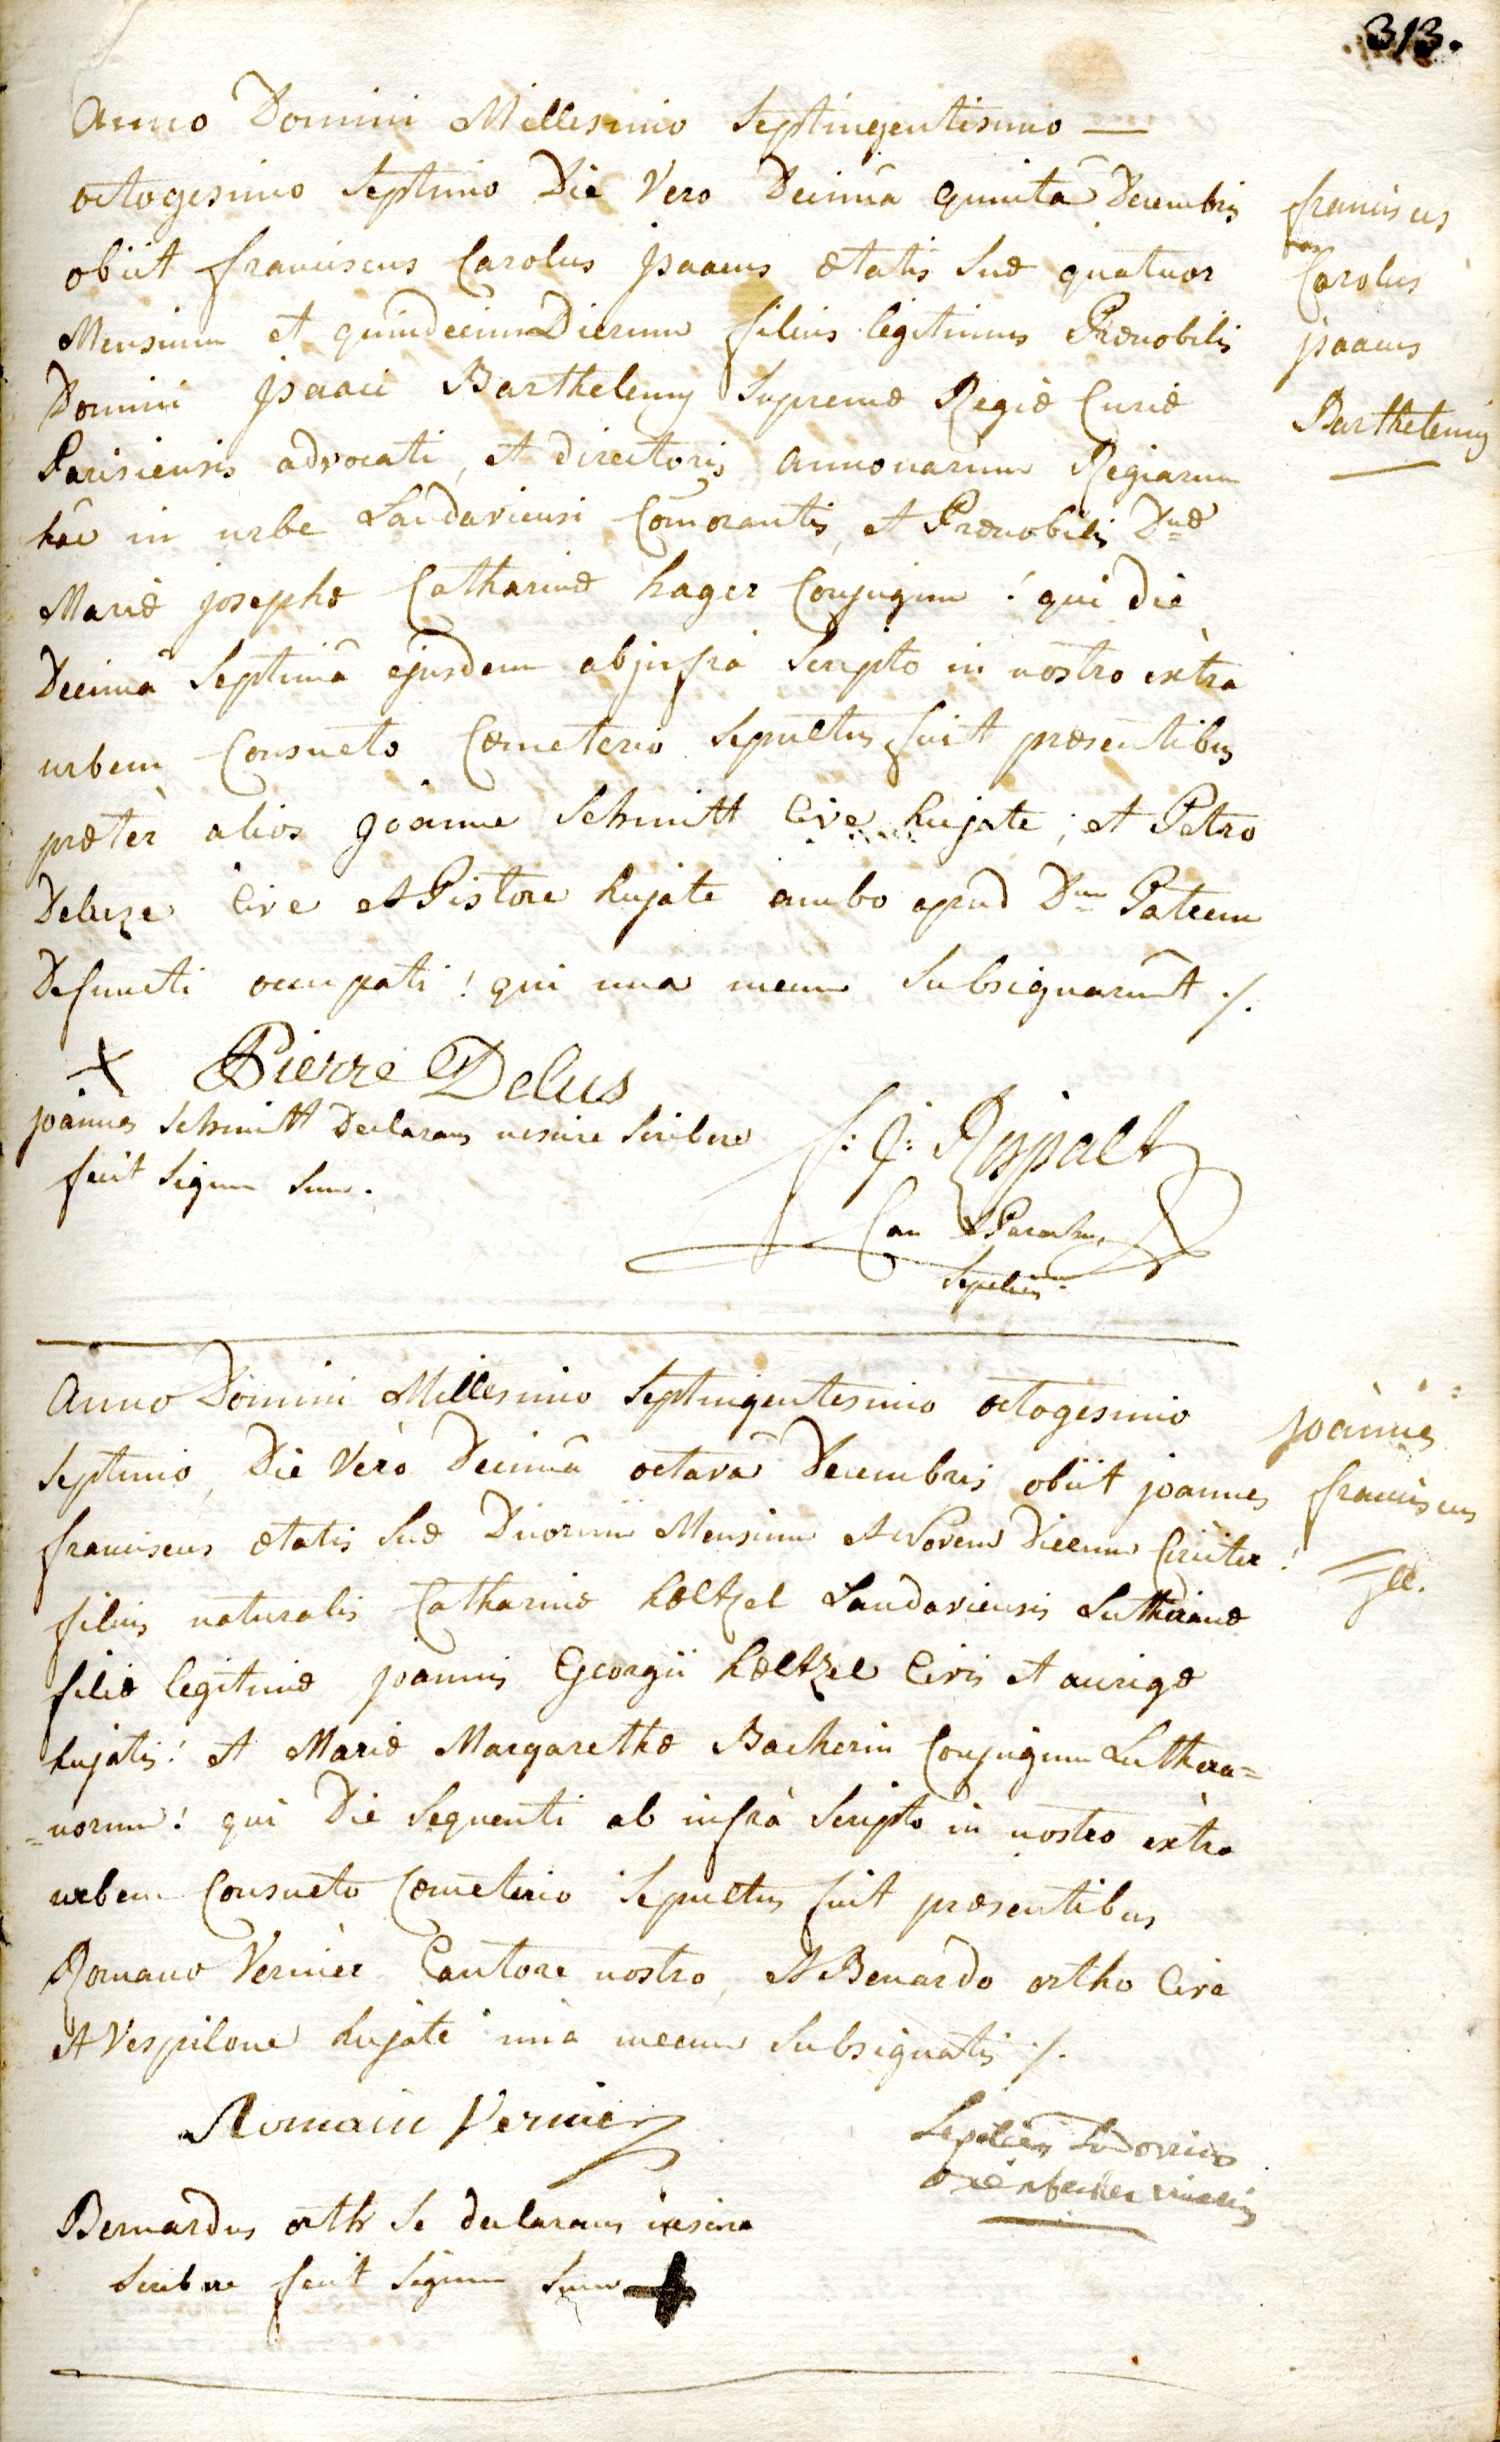 313.
Anno Domini Millesimo Septingentesimo —
octogesimo Septimo Die Vero Decimâ quintâ Decembris
obiit franciscus Carolus jsaacus ætatis suæ quatuor
Mensium et quindecim Dierum filius legitimus Prænobilis
Domini jsaaci Barthelemy Supremæ Regiæ Curiæ
Parisiensis advocati, et directoris annonarum Regiarum
hâc in urbe Landaviensi Comorantis, et Prænobilis Dnæ
Mariæ josephæ Catharinæ hager Conjugum! qui die
Decimâ Septimâ ejusdem ab jnfrà Scripto in nostro extra
urbem Consueto Cœmeterio Sepultus fuit præsentibus
præter alios joanne Schmitt Cive hujate; et Petro
Deluze Cive et Pistore hujate ambo apud Dnum Patrem
Defuncti occupati! qui una mecum Subsignarunt ./.
franciscus
Carolus
jsaacus
Barthelemy
+ Pierre Delus
joannes Schmitt Declarans nescire Scribere
fecit Signum Suum.
f: j: Rispalt
Can et Parochus
Sepeliens
Anno Domini Millesimo Septingentesimo octogesimo
Septimo, Die Verò Decimâ octavâ Decembris obiit joannes
franciscus ætatis Suæ Duorum Mensium et Novem Dierum Circiter!
filius naturalis Catharinæ hœltzel Landaviensis Lutheranæ
filiæ legitimæ joannis Georgii hœltzel Civis et aurigæ
hujatis! et Mariæ Margarethæ Bacherin Conjugum Luthera=
=norum! qui Die Sequenti ab infrà Scripto in nostro extra
urbem Consueto Cœmeterio Sepultus fuit præsentibus
Romano Vernier Cantore nostro, et Benardo ortho Cive
et Vespilone hujate unà mecum Subsignatis ./.
joannes
franciscus
Romain Vernier
Sepeliens Ludovicus
Bernardus orth Se declarans nescire
Scribere fecit Signum Suum +